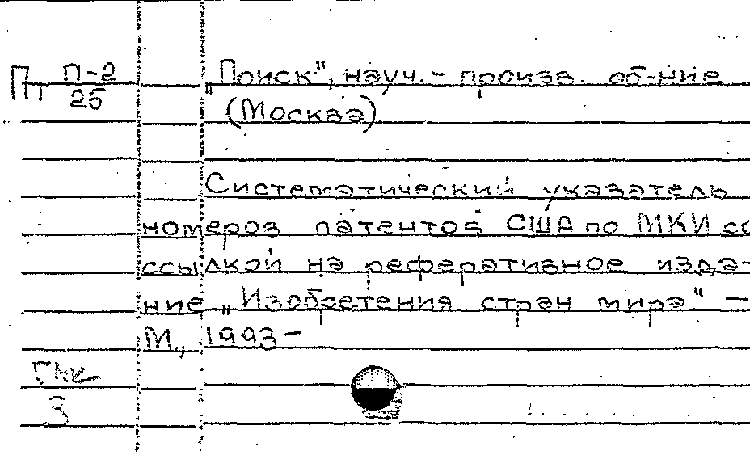 Пт П-2/25 „Поиск", науч.- произв. об-ние
(Москва)
Систематический указатель
номеров патентов США по МКИ со
ссылкой на реферативное изда-
ние „Изобретения стран мира" —
М., 1993 —
3